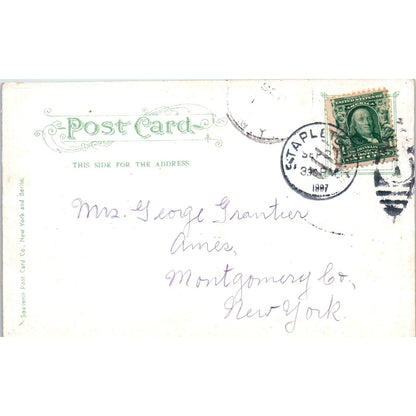 Post Card
THIS SIDE FOR THE ADDRESS.
STAPLET
SEP
1907
N.Y.
Mrs. George Grantier
Ames,
Montgomery Co,
New York.
Souvenir Post Card Co., New York and Berlin.